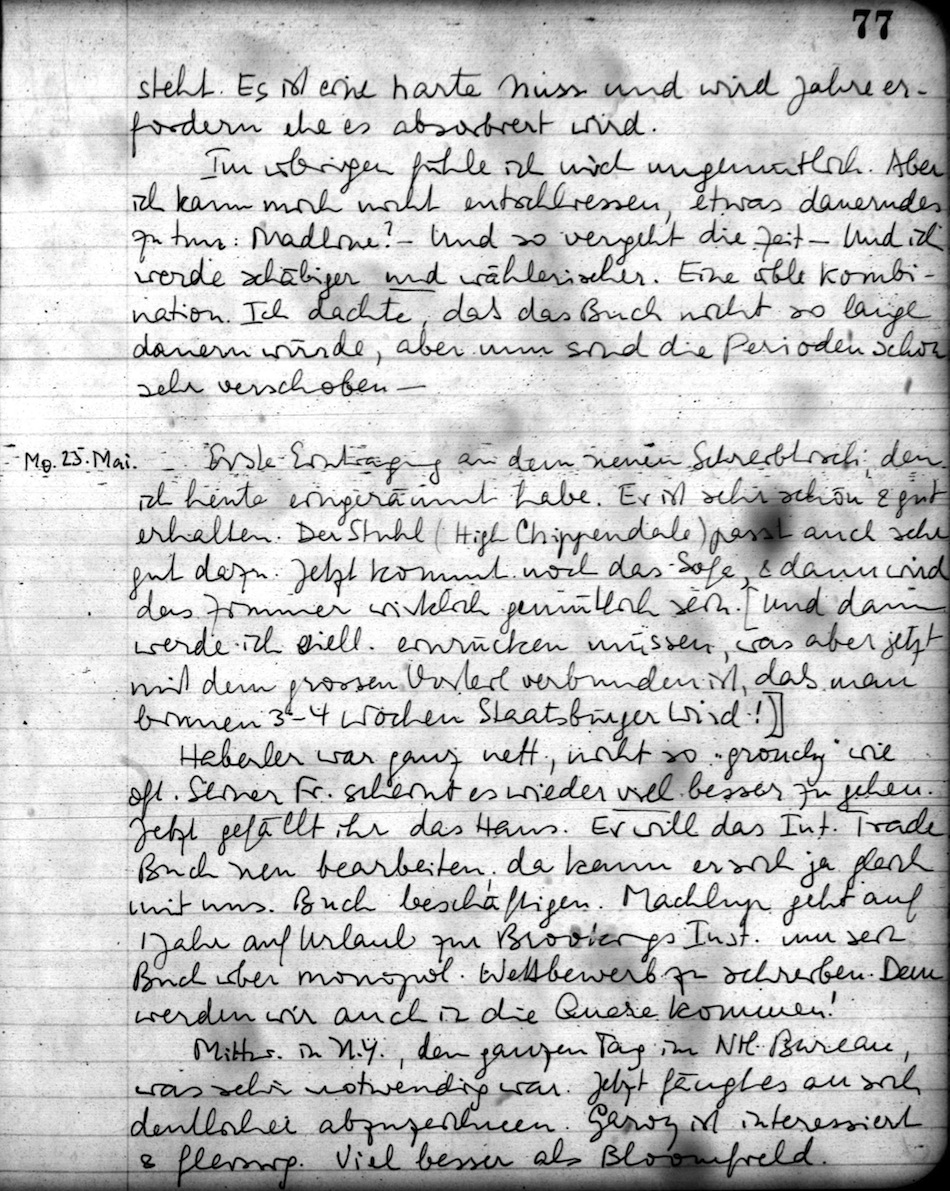 77
steht. Es ist eine harte Nuss und wird Jahre er-
fordern ehe es absorbiert wird.
Im übrigen fühle ich mich ungemütlich. Aber
ich kann mich nicht entschliessen, etwas dauerndes
zu tun: Madline? – Und so vergeht die Zeit – Und ich
werde schäbiger und wählerischer. Eine üble Kombi-
nation. Ich dachte, dass das Buch nicht so lange
dauern würde, aber nun sind die Perioden schon
sehr verschoben –
Mo. 25. Mai. Erste Eintragung an dem neuen Schreibtisch, den
ich heute eingeräumt habe. Er ist sehr schön & gut
erhalten. Der Stuhl (High Chippendale) passt auch sehr
gut dazu. Jetzt kommt noch das Sofa, & dann wird
das Zimmer wirklich gemütlich sein. [Und dann
werde ich viell. einrücken müssen, was aber jetzt
mit dem grossen Vorteil verbunden ist, dass man
binnen 3–4 Wochen Staatsbürger wird!)]
Haberler war ganz nett, nicht so "grouchy" wie
oft. Seiner Fr. scheint es wieder viel besser zu gehen.
Jetzt gefällt ihr das Haus. Er will das Int. Trade
Buch neu bearbeiten, da kann er sich ja gleich
mit uns. Buch beschäftigen. Machlup geht auf
1 Jahr auf Urlaub zur Brookings Inst. um sein
Buch über monopol. Wettbewerb zu schreiben. Dem
werden wir auch in die Quere kommen!
Mittw. in N.Y., den ganzen Tag im Ntl. Bureau,
was sehr notwendig war. Jetzt fängt es an sich
deutlicher abzuzeichnen. Garvy ist interessiert
& fleissig. Viel besser als Bloomfield.